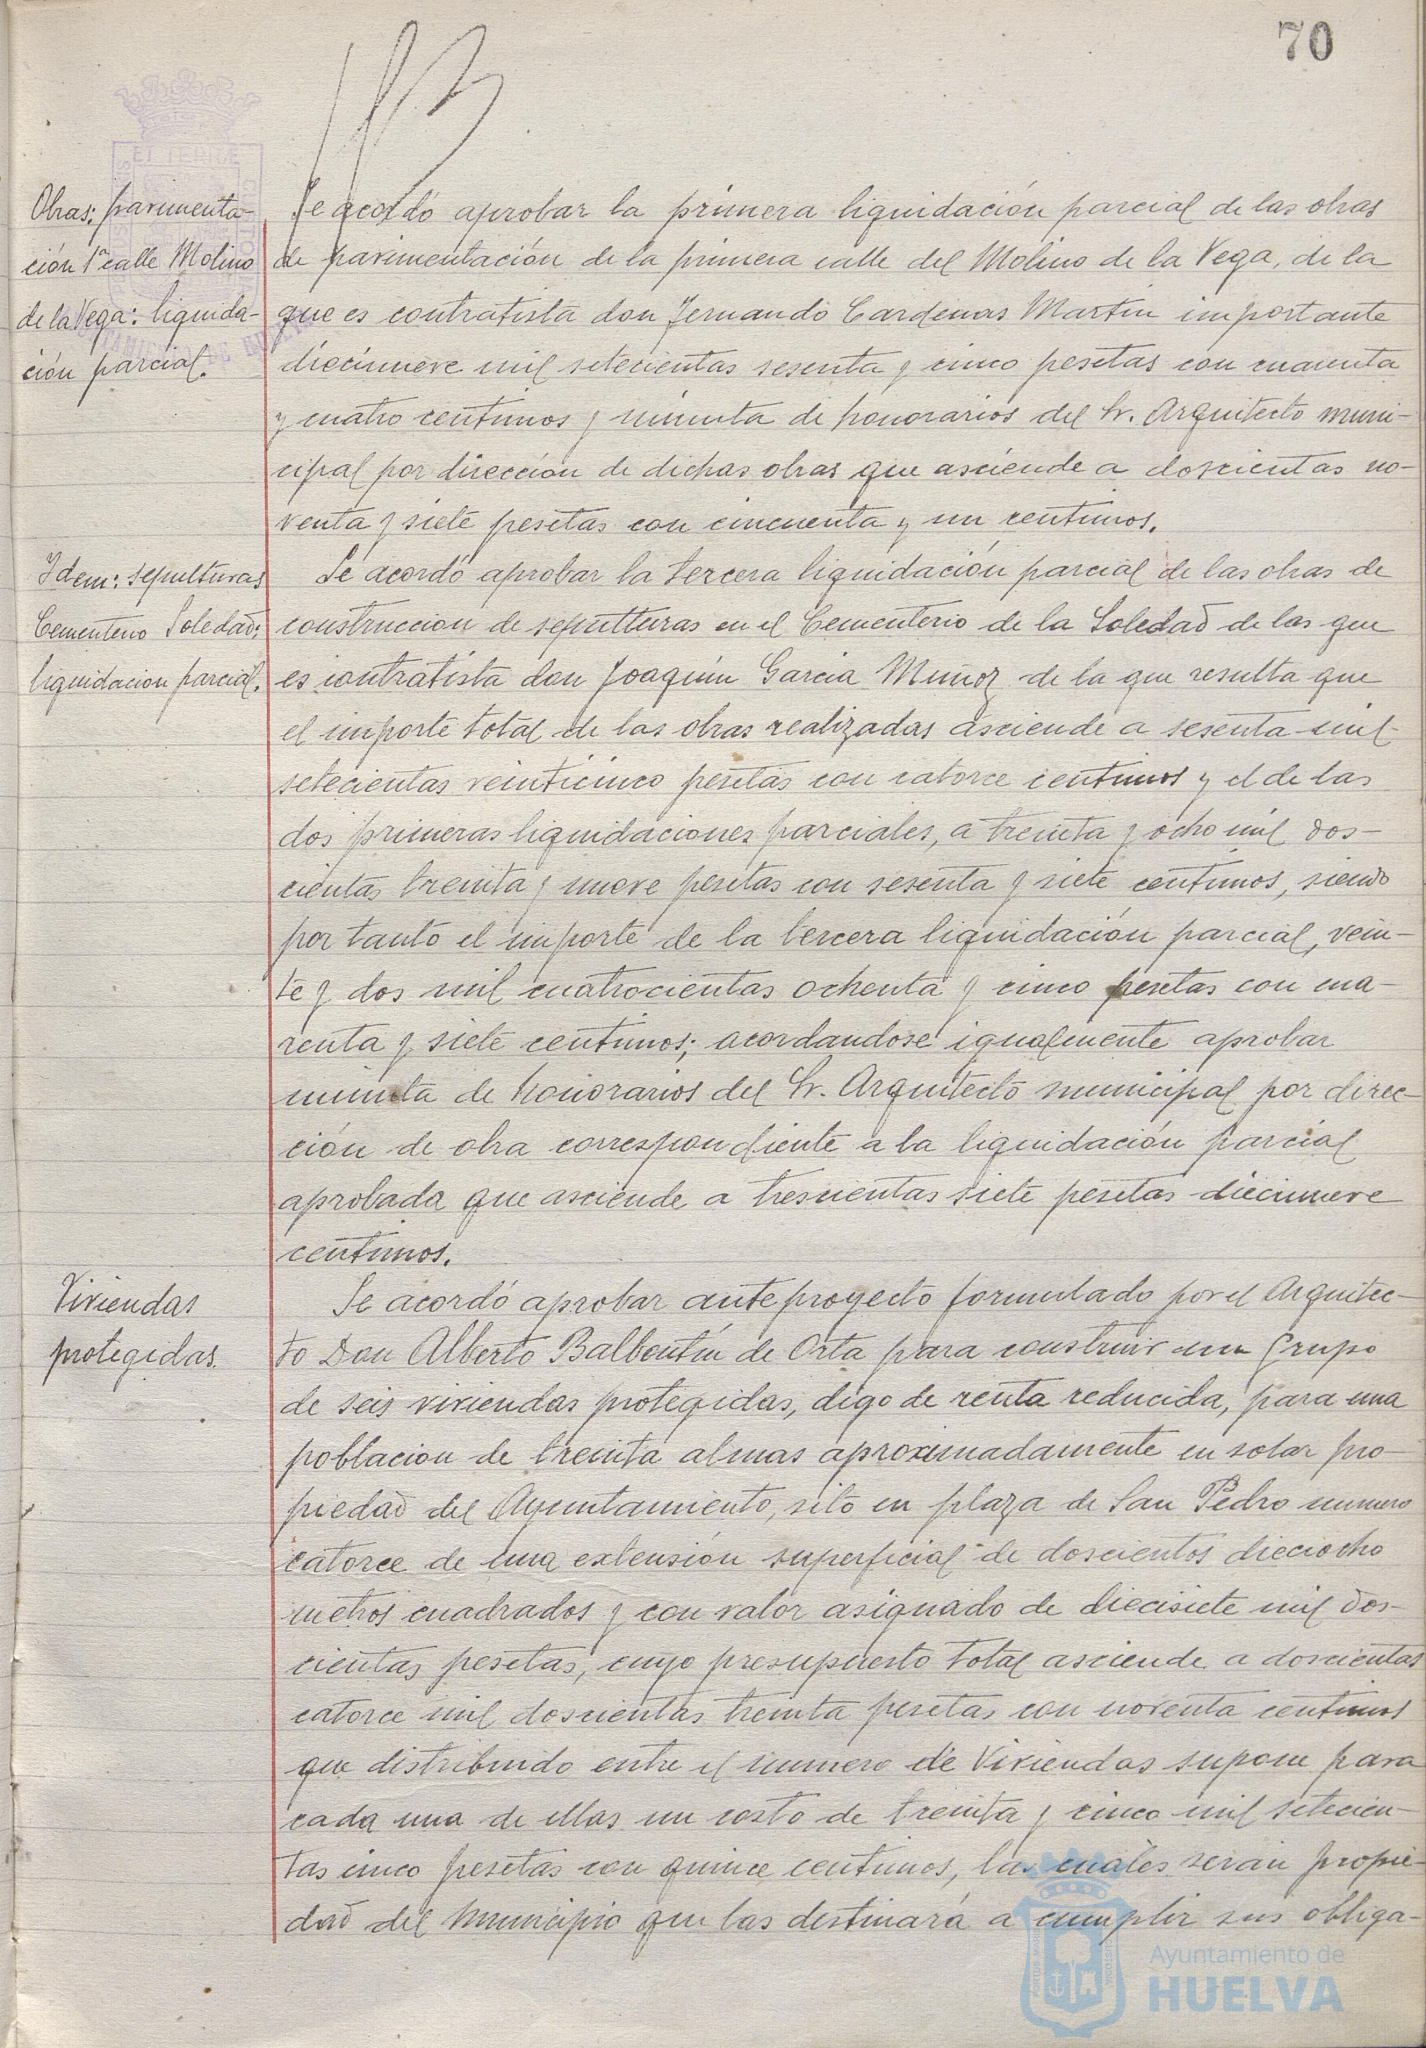 70
Obras: pavimenta-
ción 1ª calle Molino
de la Vega: liquida-
ción parcial.
Se acordó aprobar la primera liquidación parcial de las obras
de pavimentación de la primera calle del Molino de la Vega, de la
que es contratista don Fernando Cardenas Martín importante
diecinueve mil setecientas sesenta y cinco pesetas con cuarenta
y cuatro centimos y minuta de honorarios del Sr. Arquitecto muni-
cipal por dirección de dichas obras que asciende a doscientas no-
venta y siete pesetas con cincuenta y un centimos.
Idem: sepulturas
Cementerio Soledad:
liquidacion parcial.
Se acordó aprobar la tercera liquidación parcial de las obras de
construccion de sepulturas en el Cementerio de la Soledad de las que
es contratista don Joaquín Garcia Muñoz de la que resulta que
el importe total de las obras realizadas asciende a sesenta mil
setecientas veinticinco pesetas con catorce centimos y el de las
dos primeras liquidaciones parciales, a treinta y ocho mil dos-
cientas treinta y nueve pesetas con sesenta y siete centimos, siendo
por tanto el importe de la tercera liquidación parcial, vein-
te y dos mil cuatrocientas ochenta y cinco pesetas con cua-
renta y siete centimos; acordandose igualmente aprobar
minuta de honorarios del Sr. Arquitecto municipal por direc-
ción de obra correspondiente a la liquidación parcial
aprobada que asciende a trescientas siete pesetas diecinueve
centimos.
Viviendas
protegidas.
Se acordó aprobar anteproyecto formulado por el Arquitec-
to Don Alberto Balbontín de Orta para construir un Grupo
de seis viviendas protegidas, digo de renta reducida, para una
poblacion de treinta almas aproximadamente en solar pro-
piedad del Ayuntamiento, sito en plaza de San Pedro numero
catorce de una extensión superficial de doscientos dieciocho
metros cuadrados y con valor asignado de diecisiete mil dos-
cientas pesetas, cuyo presupuesto total asciende a doscientas
catorce mil doscientas treinta pesetas con noventa centimos
que distribuido entre el numero de Viviendas supone para
cada una de ellas un costo de treinta y cinco mil setecien-
tas cinco pesetas con quince centimos, las cuales seran propie-
dad del Municipio que las destinará a cumplir sus obliga-
Ayuntamiento de
HUELVA